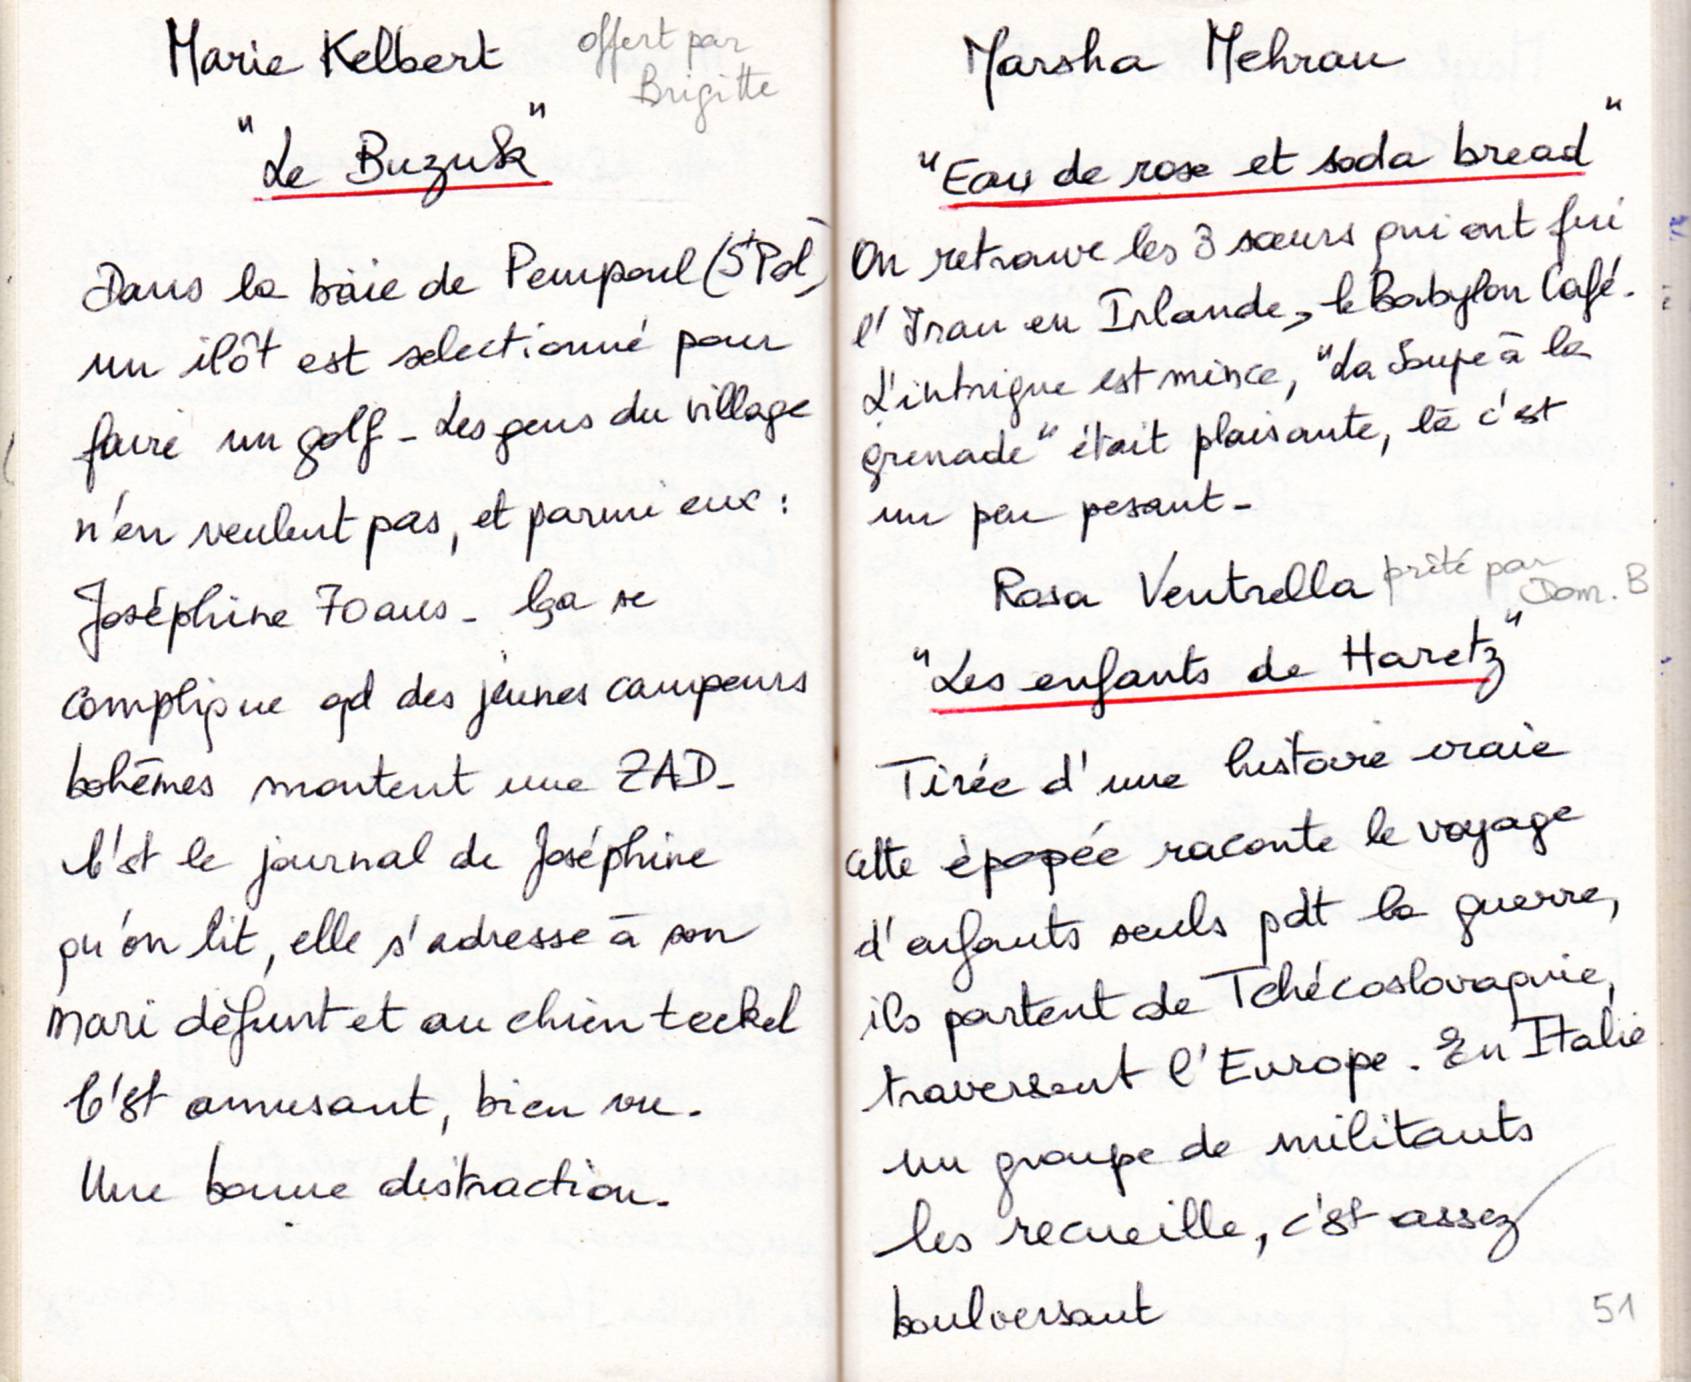 Marie Kelbert
offert par
Brigitte
"Le Buzuk"
Dans la baie de Pempoul (St Pol)
un ilôt est selectionné pour
faire un golf - Les gens du village
n'en veulent pas, et parmi eux :
Joséphine 70 ans - Ça se
complique qd des jeunes campeurs
bohèmes montent une ZAD -
C'est le journal de Joséphine
qu'on lit, elle s'adresse à son
mari défunt et au chien teckel
C'est amusant, bien vu.
Une bonne distraction.
Marsha Mehran
"Eau de rose et soda bread"
On retrouve les 3 sœurs qui ont fui
l'Iran en Irlande, le Babylon Café.
L'intrigue est mince, "La Soupe à la
grenade" était plaisante, là c'est
un peu pesant -
Rosa Ventrella
prêté par
Dom. B
"Les enfants de Haretz"
Tirée d'une histoire vraie
cette épopée raconte le voyage
d'enfants seuls pdt la guerre,
ils partent de Tchécoslovaquie,
traversent l'Europe. En Italie
un groupe de militants
les recueille, c'est assez
boulversant
51